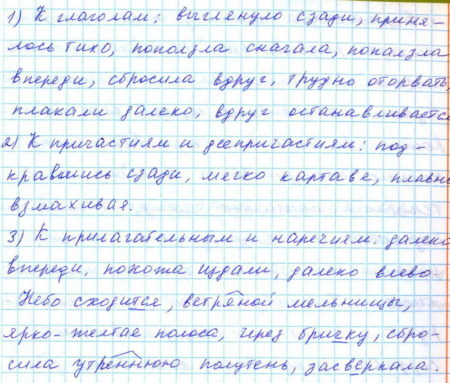 1) К глаголам: выглянуло сзади, приня-
лось тихо, поползла сначала, поползла
впереди, сбросила вдруг, трудно оторвать,
плакали далеко, вдруг останавливается
2) К причастиям и деепричастиям: под-
кравшись сзади, мегко картаве, плавно
взмахивая.
3) К прилагательным и наречиям: далеко
впереди, похожа издали, далеко влево.
Небо сходится, ветряной мельницы,
ярко-желтае полоса, через бричку, сбро-
сила утреннюю полутень, засверкала.